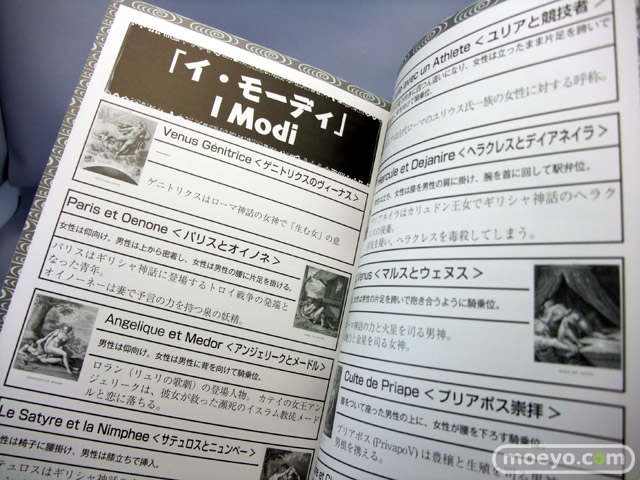 「イ・モーディ」
I Modi
Venus Génitrice <ゲニトリクスのヴィーナス>
ゲニトリクスはローマ神話の女神で「生む女」の意
Paris et Oenone <パリスとオイノネ>
女性は仰向け、男性は上から密着し、女性は男性の腰に片足を掛ける。
パリスはギリシャ神話に登場するトロイ戦争の発端と
なった青年。
オイノーネーは妻で予言の力を持つ泉の妖精。
Angelique et Medor <アンジェリークとメードル>
男性は仰向け、女性は男性に背を向けて騎乗位。
ロラン（リュリの歌劇）の登場人物。カテイの女王アン
ジェリークは、彼女が救った瀕死のイスラム教徒メード
ルと恋に落ちる。
Le Satyre et la Nimphee <サテュロスとニュンペー>
女性は椅子に腰掛け、男性は膝立ちで挿入。
avec un Athlete <ユリアと競技者>
女性は立ったまま片足を跨いで
騎乗位。
古代ローマのユリウス氏一族の女性に対する呼称。
Hercule et Dejanire <ヘラクレスとデイアネイラ>
女性は腰を男性の肩に掛け、腕を首に回して駅弁位。
デイアネイラはカリュドン王女でギリシャ神話のヘラク
レスの後妻。
ヘラクレスを毒殺してしまう。
Venus <マルスとウェヌス>
男性の片足を跨いで抱き合うように騎乗位。
ローマ神話の力と火星を司る男神。
金星を司る女神。
Culte de Priape <プリアポス崇拝>
座った男性の上に、女性が腰を下ろす騎乗位。
プリアポス (PrivapoV) は豊穣と生殖を司る男神
男根を携える。
moeyo.com